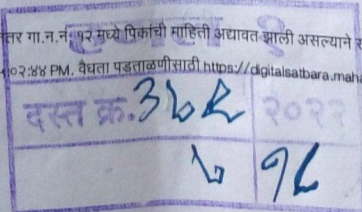 तर गा.न.नं. १२ मध्ये पिकांची माहिती अद्यावत झाली असल्याने
०२:४४ PM. वैधता पडताळणीसाठी https://digitalsatbara.maha
दस्त क्र. ३८९ २०२२
८ १८